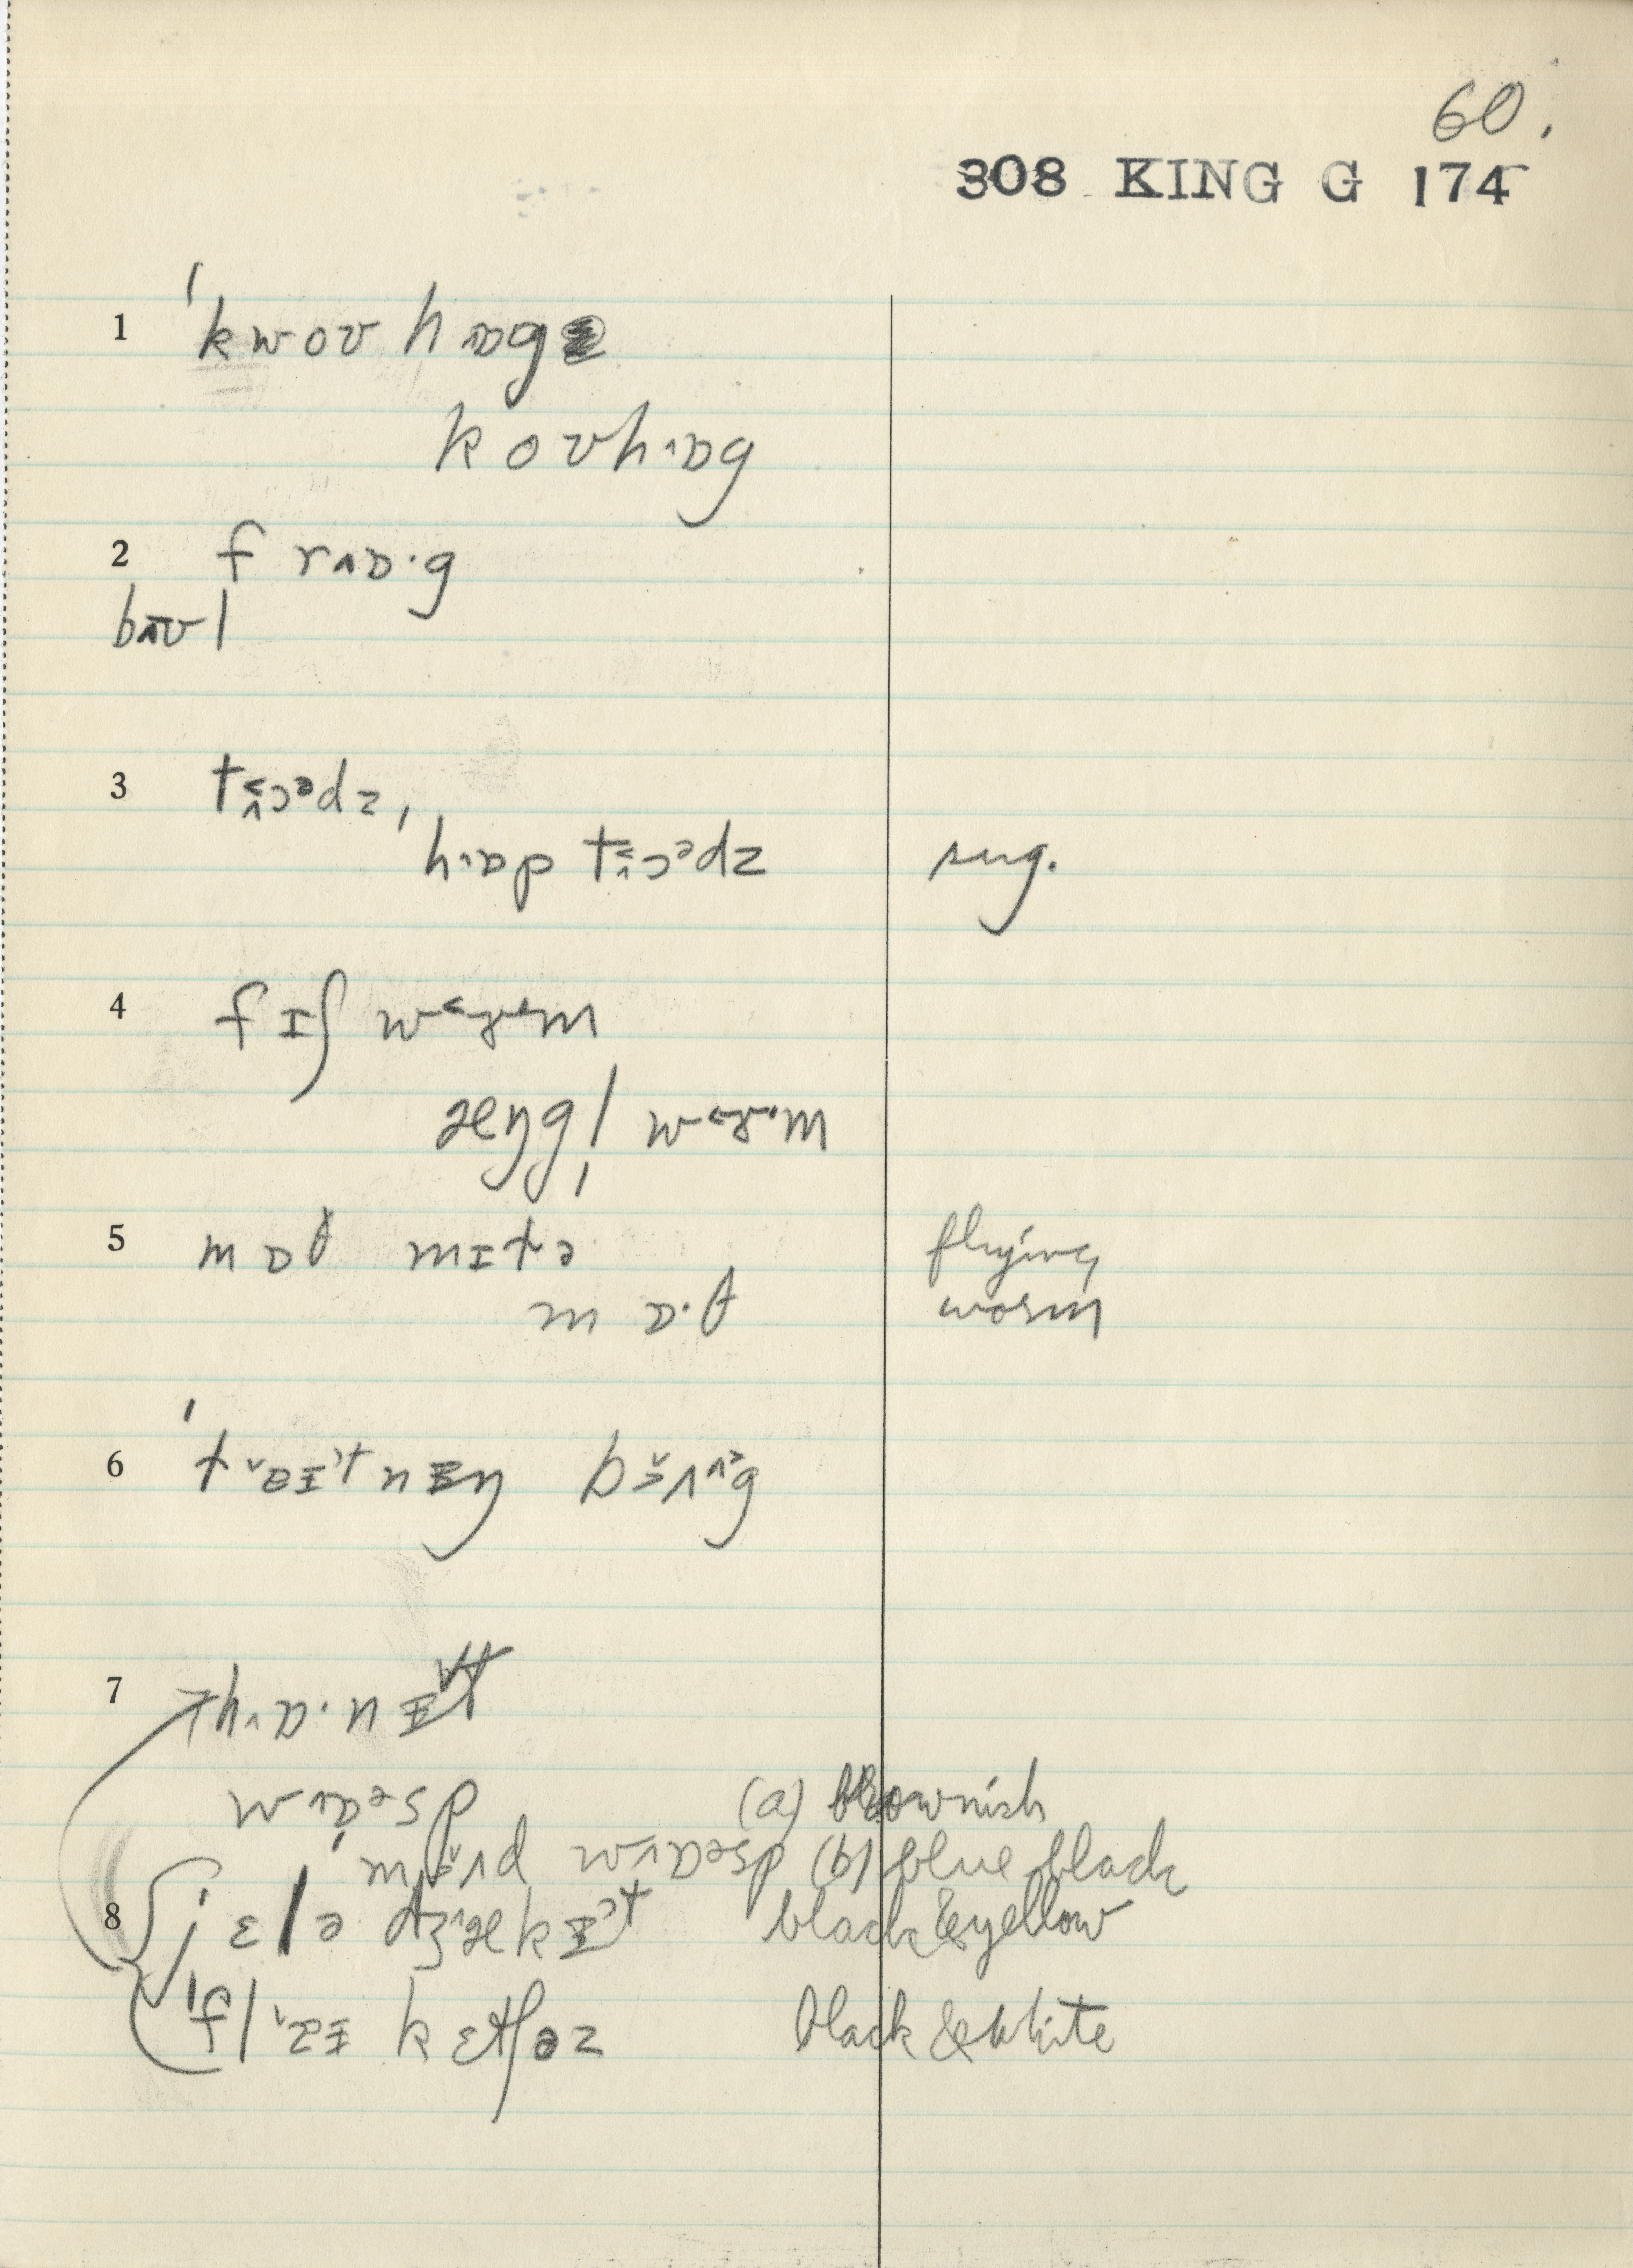 60.
308 KING G 174
1 ˈkwoʊ hɒg
koʊhɒg
2 frɒ·g
bʊl
3 toədz,
hɒp toədz
sug.
4 fɪʃ wɜəm
æŋgl̩ wɜəm
5 mɒθ mɪtə
flying
mɒ·θ
worm
6 bʌg
7 hɒ·nɪt
wɒəsp (a) brownish
mʌd wɒəsp (b) blue black
8 jɛlə dʒækɪt black & yellow
kɛtʃəz black & white